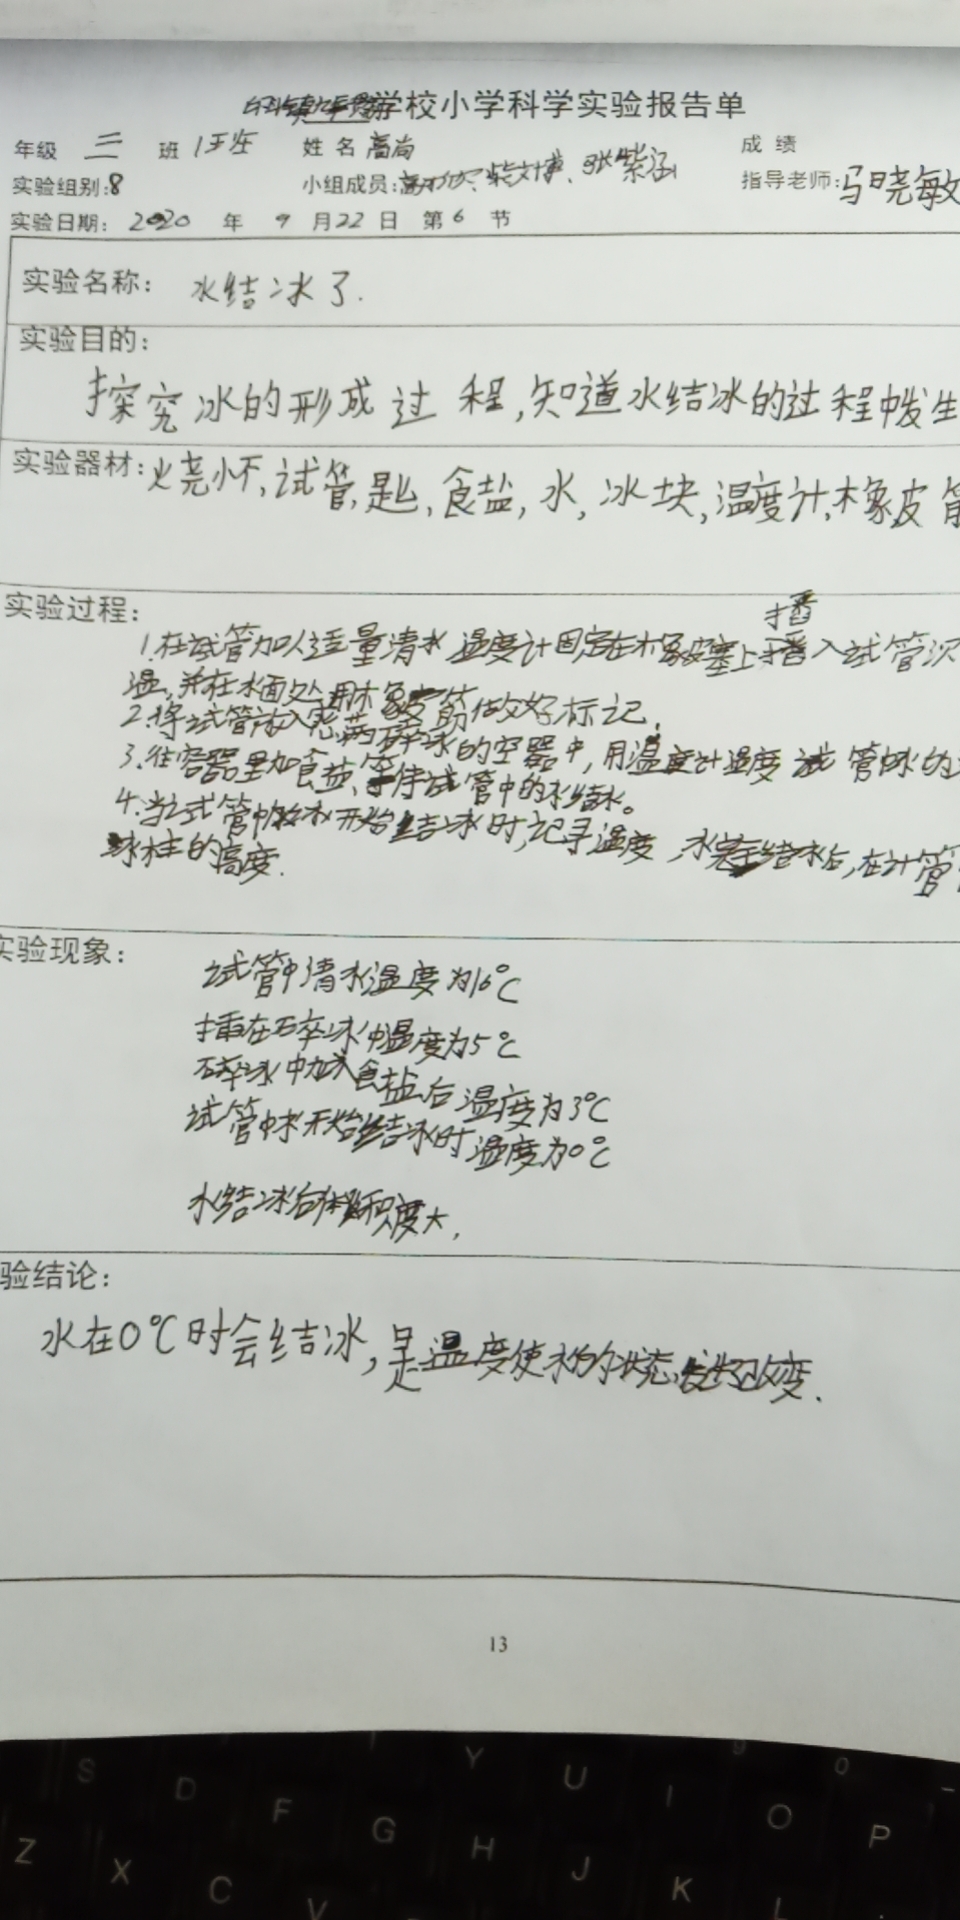 学校小学科学实验报告单
年级 三 班 1班 姓名 高尚 成绩
实验组别:8 小组成员: 柴文博、张紫涵 指导老师:马晓敏
实验日期: 2020 年 9 月22 日 第6 节
实验名称: 水结冰了.
实验目的:
探究冰的形成过程,知道水结冰的过程中发生
实验器材:烧怀,试管,匙,食盐,水,冰块,温度计,木橡皮
实验过程:
播
1.在试管加入适量清水 温度计固定在木橡皮塞上播入试管
温,并在水面处用木橡皮筋做好标记.
2.将试管放入 满碎冰的容器中,用温度计温度 试管中水的
3.往容器里加食盐,等待试管中的水结冰。
4.当试管中 水开始结冰时,记录温度,水完全结冰后,在计管
冰柱的高度.
实验现象:
试管中清水温度为16℃
插在碎冰中温度为5℃
碎冰中加入食盐后温度为3℃
试管中水开始结冰时温度为0℃
水结冰后体积 大.
验结论:
水在0℃时会结冰,是温度使水的状态发生改变.
13
Y U I O P
S D F G H J K L
Z X C V